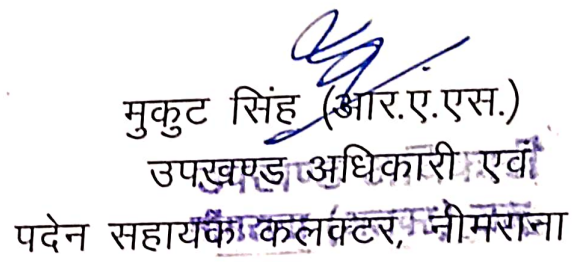 मुकुट सिंह (आर.ए.एस.)
उपखण्ड अधिकारी एवं
पदेन सहायक कलक्टर, नीमराना